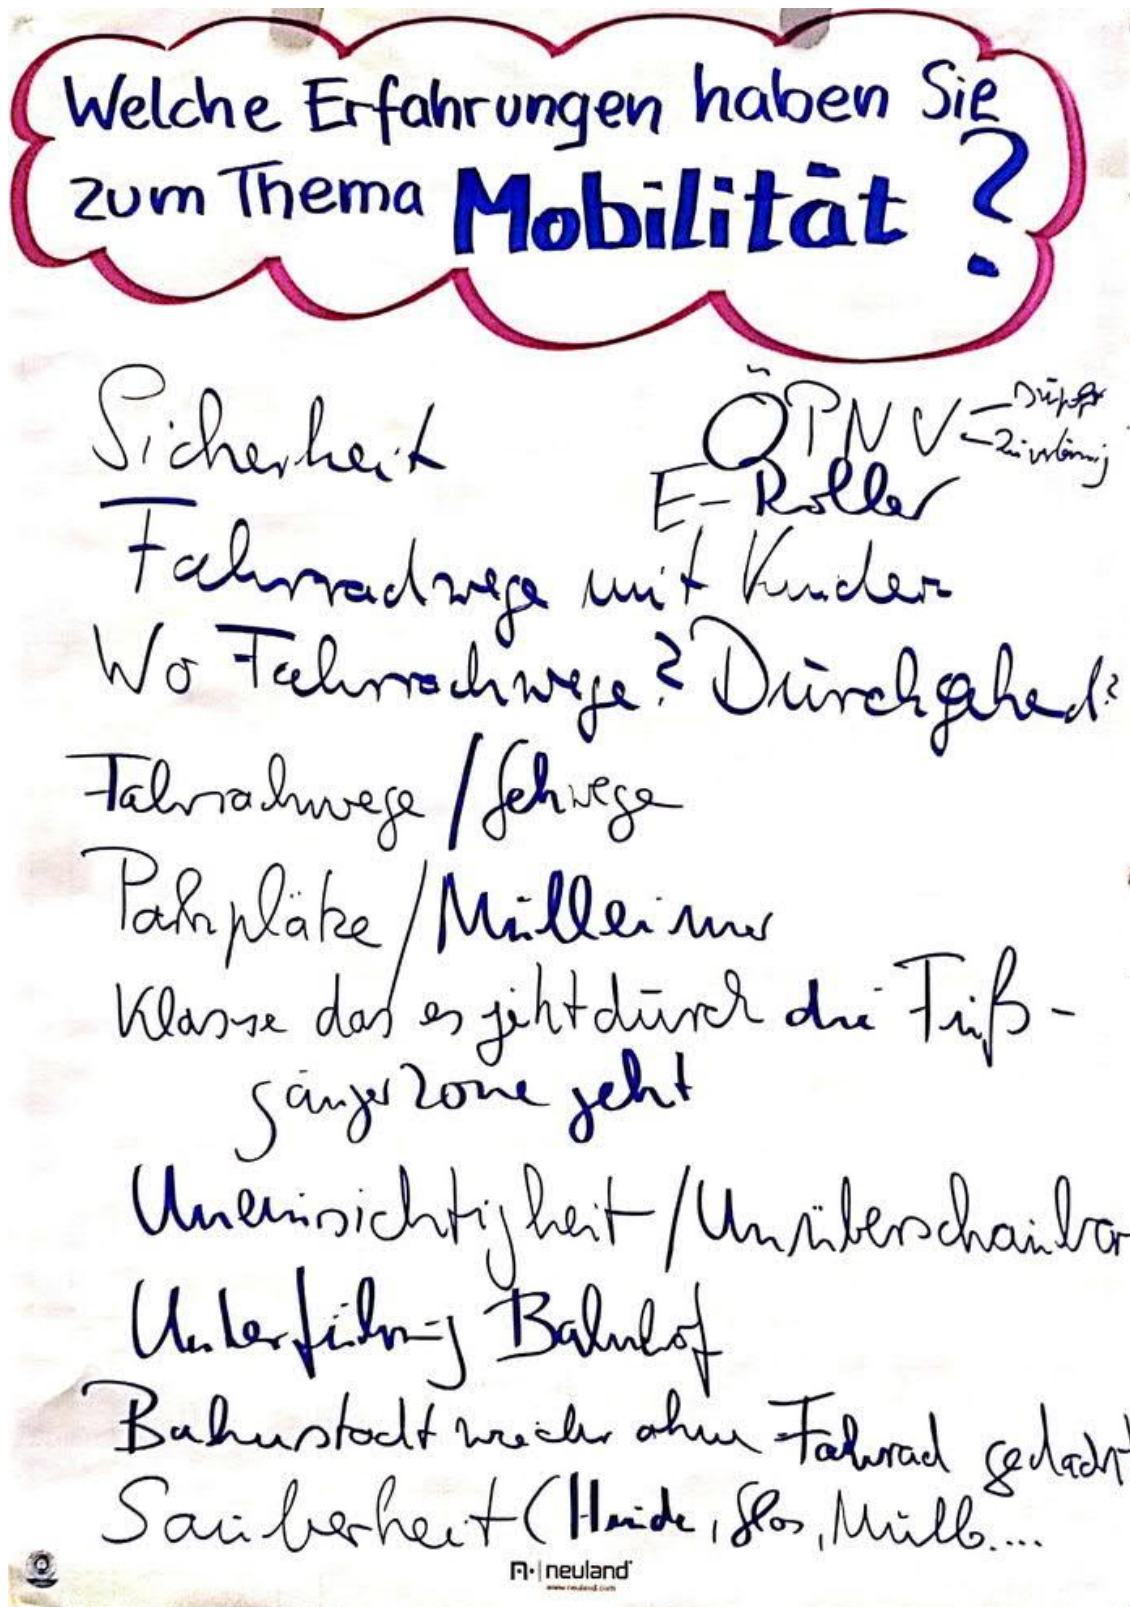 Welche Erfahrungen haben Sie
zum Thema Mobilität ?
Sicherheit
ÖPNV
E-Roller
Fahrradwege mit Kinder
Wo Fahrradwege? Durchgehed?
Fahrradwege / Gehwege
Parkplätze / Mülleimer
Klasse das es jetzt durch die Fuß-
gängerzone geht
Uneinsichtigkeit / Unüberschaubar
Unterführung Bahnhof
Bahnstadt wieder ohne Fahrrad gedacht
Sauberkeit (Hunde, Glas, Müll....
neuland
www.neuland.com